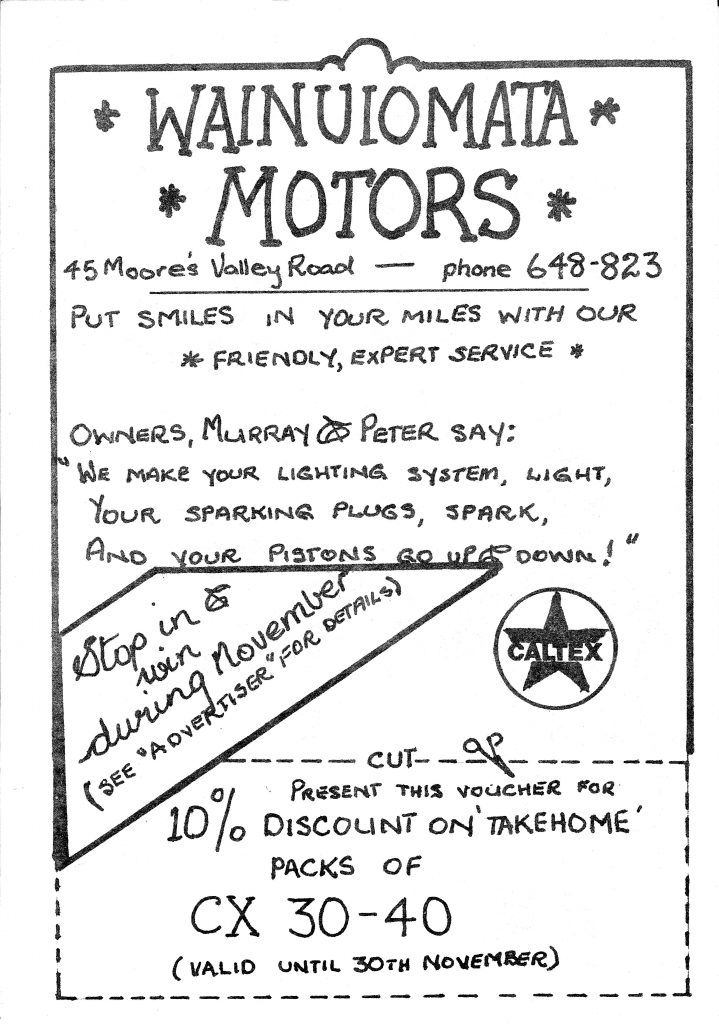 * WAINUIOMATA *
* MOTORS *
45 Moore's Valley Road — phone 648-823
PUT SMILES IN YOUR MILES WITH OUR
* FRIENDLY, EXPERT SERVICE *
OWNERS, MURRAY & PETER SAY:
"WE MAKE YOUR LIGHTING SYSTEM, LIGHT,
YOUR SPARKING PLUGS, SPARK,
AND YOUR PISTONS GO UP & DOWN!"
Stop in &
win
during November
(SEE "ADVERTISER", FOR DETAILS)
CALTEX
CUT
PRESENT THIS VOUCHER FOR
10% DISCOUNT ON 'TAKEHOME'
PACKS OF
CX 30-40
(VALID UNTIL 30TH NOVEMBER)